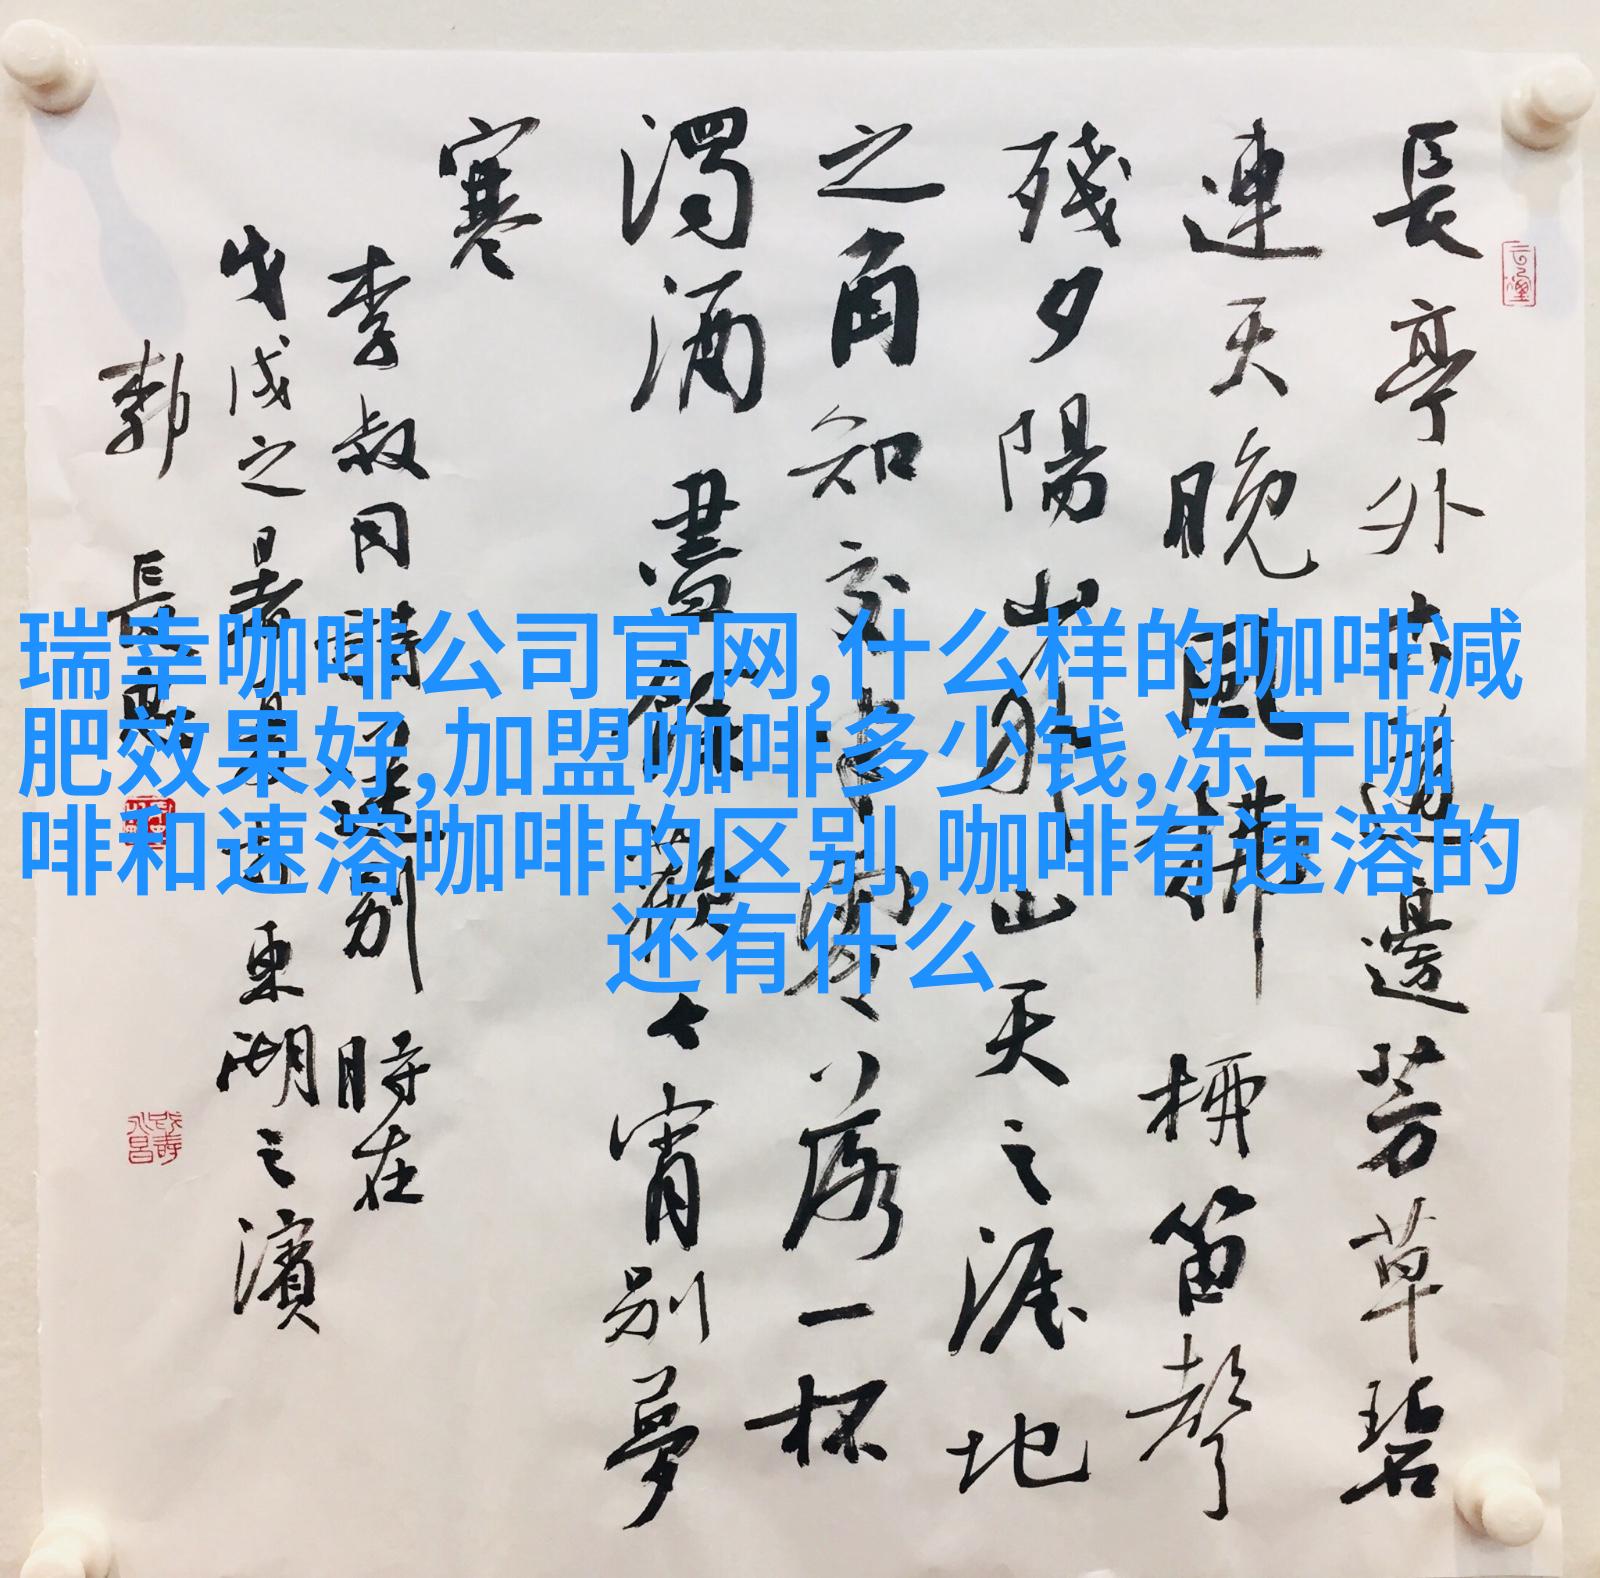 瑞幸咖啡公司官网,什么样的咖啡减
肥效果好,加盟咖啡多少钱,冻干咖
啡和速溶咖啡的区别,咖啡有速溶的
还有什么
長亭外古道邊芳草碧
連天晚風拂柳笛聲
殘夕陽山外山天之涯地
之角知交半零落一杯
濁酒盡餘歡今宵别夢
寒
李叔同詩送别 時在
戊戌之暑月于東湖之濱